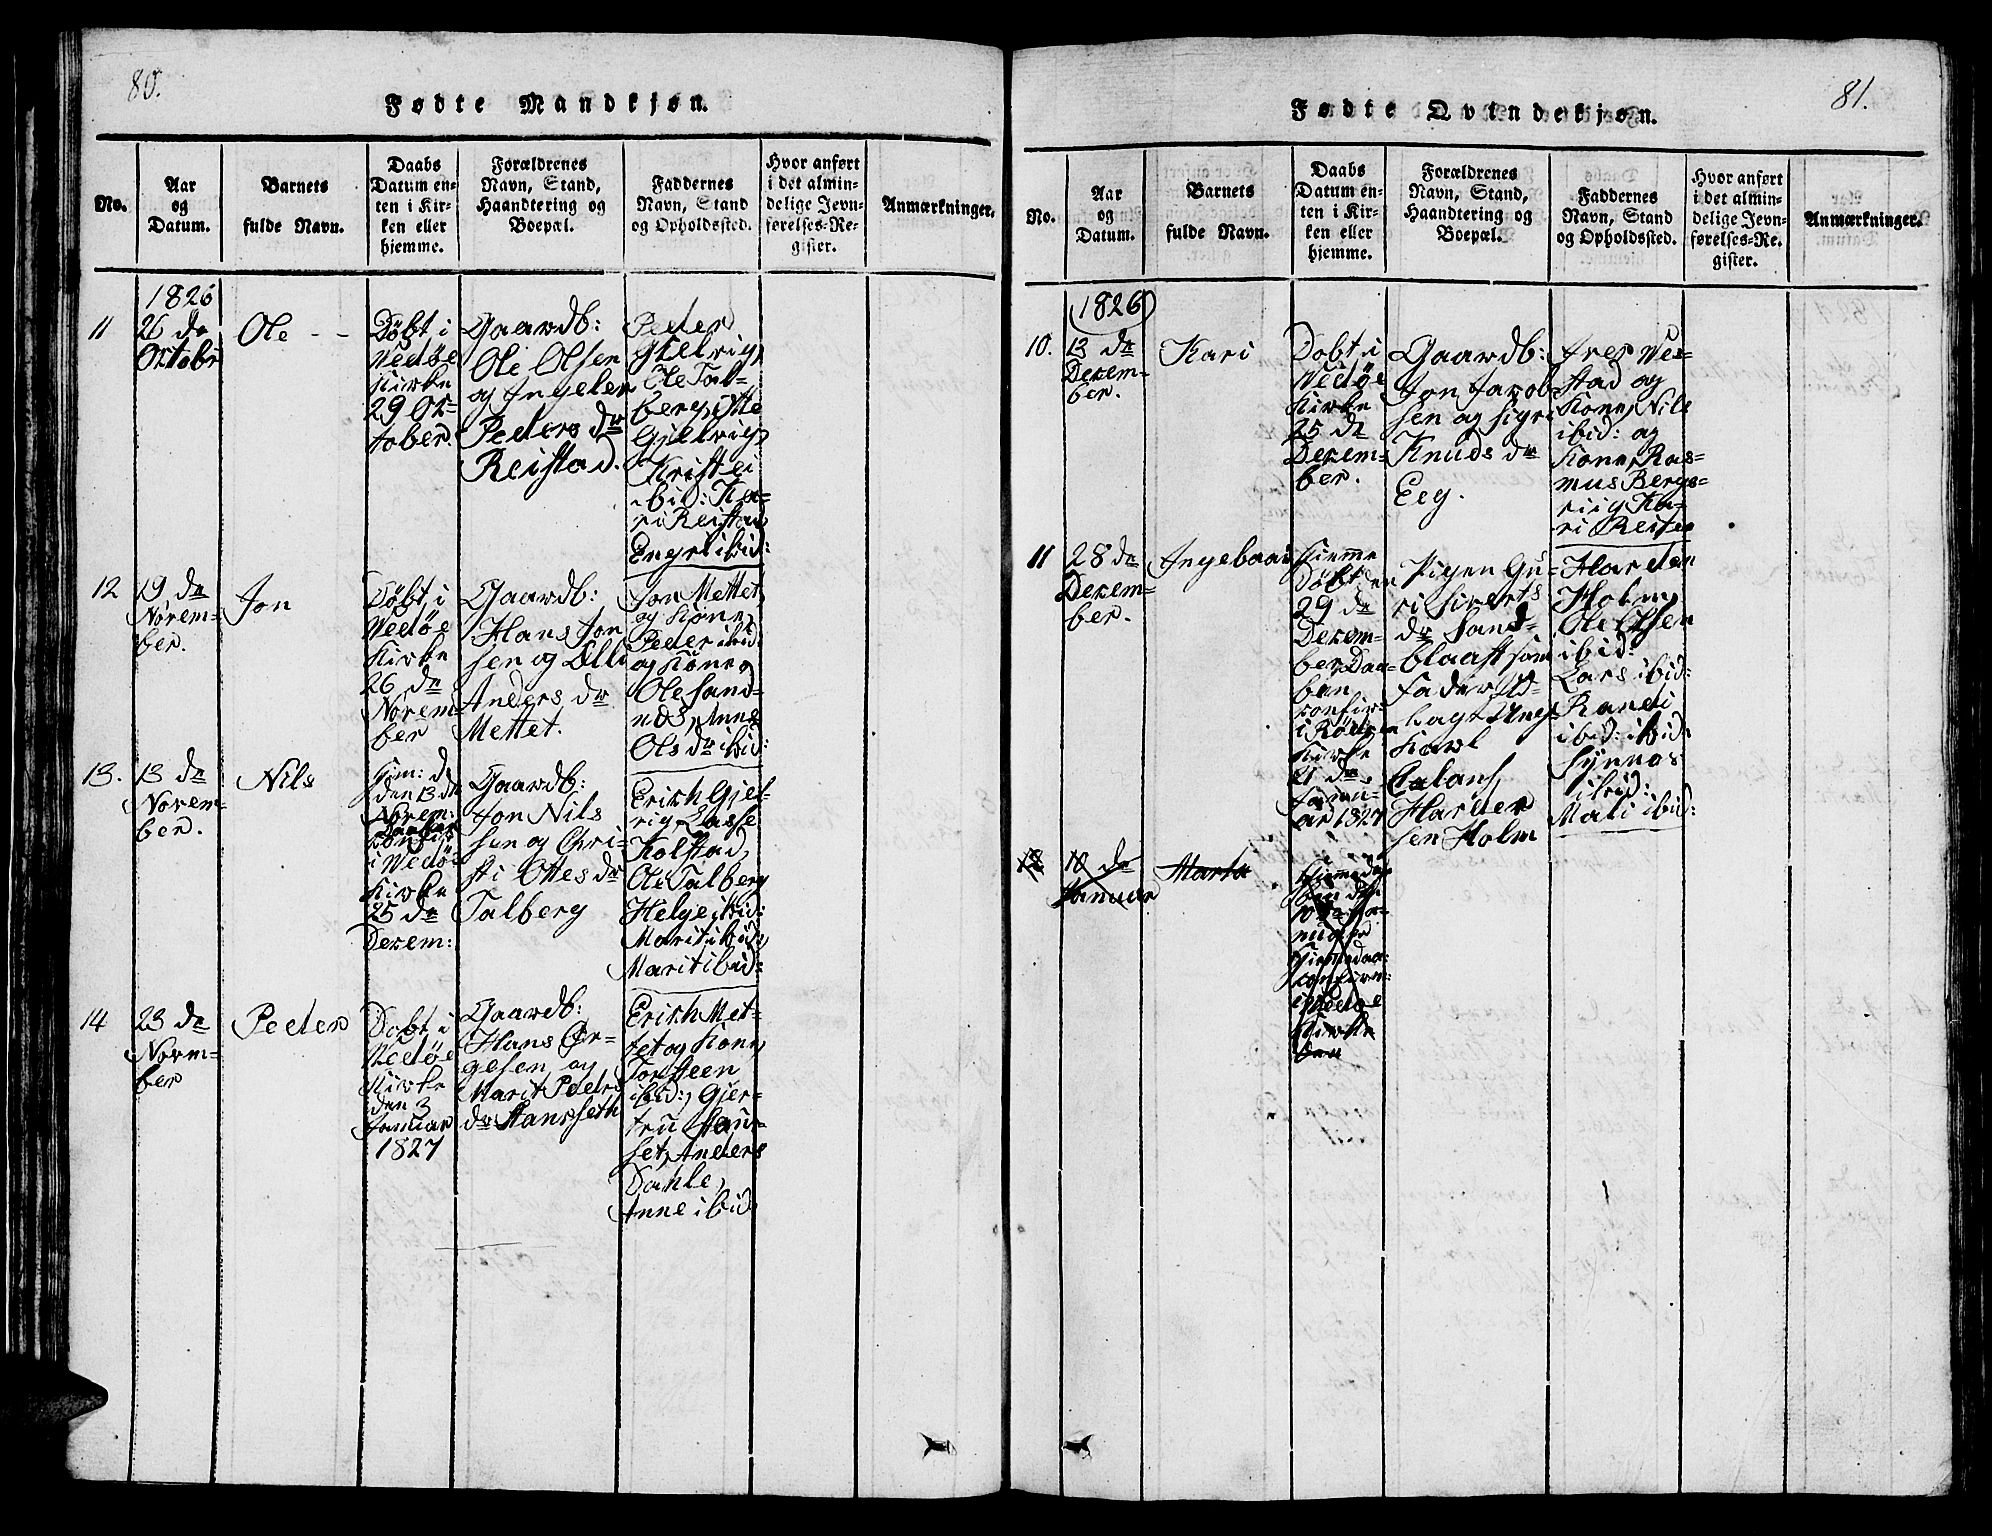 80.
Fødte Mandkjøn.
No.
Aar
og
Datum.
Barnets
fulde Navn.
Daabs
Datum en-
ten i Kir-
ken eller
hjemme.
Forældrenes
Navn, Stand,
Haandtering og
Boepæl.
Faddernes
Navn, Stand
og Opholdssted.
Hvor anført
i det almin-
delige Jevn-
førelses-Re-
gister.
Anmærkninger.
1826
11
26 de
Octobr
Ole - -
Döbt i
Vedöe
Kirke
29 Oc-
tober
Gaardb:
Ole Olsen
og Ingeler
Peders dr
Reistad.
Peder
Gjelvig,
Ole Tal-
berg, Otte
Gjelvig,
Kristi
ibid: Ka-
ri Reistad,
Engel ibid:
12
19 de
Novem-
ber.
Jon
Döbt i
Vedöe
Kirke
26 de
Novem-
ber
Gaardb:
Hans Jon
sen og Olli
Anders dr
Mettet.
Jon Mettet,
og Kone,
Peder ibid:
og Kone,
Ole Sand-
nes, Anne
Ols dr ibid:
13.
13 de
Novem-
ber.
Nils
Hjem: d.
den 13 de
Novem:
Daaben
confir
i Vedöe
Kirke
25 de
Decem:
Gaardb:
Jon Nils
sen og Chri-
sti Ottes dr
Talberg
Erich Gjel-
vig, Lasse
Kolstad,
Ole Talberg
Helge ibid:
Marit ibid,
Marit ibid:
14
23 de
Novem-
ber
Peder
Dobt i
Vedöe
Kirke
den 3
Januar
1827
Gaardb:
Hans Ør-
gesen og
Marit Peders
dr Hansseth
Erich Met-
tet og Kone,
Torsteen
ibid:, Gjer-
tru Hau-
set, Anders
Dahle,
Anne ibid
81.
Fødte Qvindekjøn.
No.
Aar
og
Datum.
Barnets
fulde Navn.
Daabs
Datum en-
ten i Kir-
ken eller
hjemme.
Forældrenes
Navn, Stand,
Haandtering og
Boepæl.
Faddernes
Navn, Stand
og Opholdssted.
Hvor anført
i det almin-
delige Jevn-
førelses-Re-
gister.
Anmærkninger.
1826
10.
13 de
Decem-
ber.
Kari
Dobt i
Vedöe
Kirke
25 de
Decem-
ber.
Gaardb:
Jon Jacob
sen og Sigri
Knuds dr
Eeg.
Iver Ves-
stad og
Kone, Nils
ibid: og
Kone, Ras-
mus Bergs-
viig Ka-
ri Reistad
11
28 de
Decem-
ber.
Ingebaar
Hjemme
Döbt den
29 de
Decem-
ber Daa-
ben
confir-
i Röd
Kirke
21 de
Janu-
ar 1827
Pigen Gu-
ri Siverts
dr Sand-
blaast som
Fader Ud-
lagt Ung
Karl
Halans
Harder
sen Holm
Harder
Holm,
Ole Olsen
ibid:
Lars ibid:
Randi
ibid: ibid:
Synnas
ibid:
Mali ibid:
12
10 de
Januar
Marta
Kirke
den